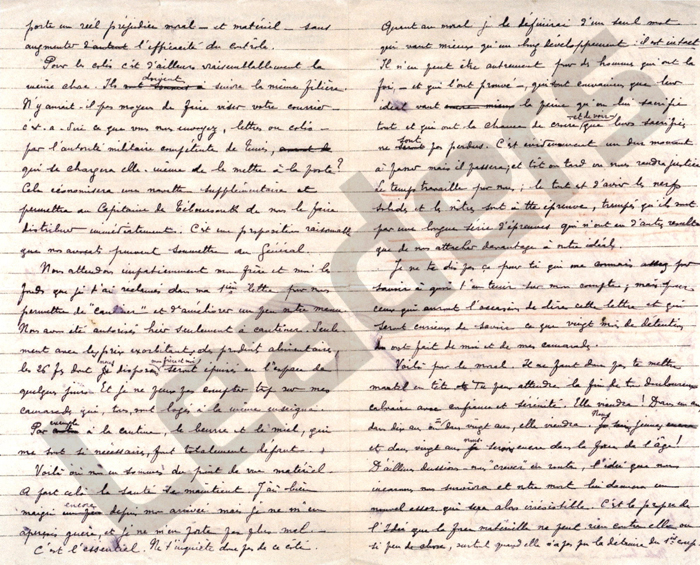 porte un réel préjudice moral – et matériel – sans
augmenter d'autant l'efficacité du contrôle.
Pour le colis c'est d'ailleurs vraisemblablement la
même chose. Ils doivent suivre la même filière.
N'y aurait-il pas moyen de faire viser votre courrier
c.à.d. ce que vous nous envoyez, lettres ou colis
par l'autorité militaire compétente de Tunis,
qui se chargera elle-même de la mettre à la poste?
Cela économisera une navette supplémentaire et
permettra au Capitaine de Téboursouk de nous le faire
distribuer immédiatement. C'est une proposition raisonnable
que nos avocats peuvent soumettre au Général.
Nous attendons impatiemment mon frère et moi les
fonds que je t'ai réclamés dans ma 1ère lettre pour nous
permettre de "cantiner" et d'améliorer un peu notre menu.
Nous avons été autorisés hier seulement à cantiner. Seule-
ment avec les prix exorbitants des produits alimentaires,
les 26 fs dont nous disposons seront épuisés en l'espace de
quelques jours. Et je ne peux pas compter trop sur mes
camarades qui, tous, sont logés à la même enseigne.
Par exemple à la cantine, le beurre et le miel, qui
me sont si nécessaires, font totalement défaut.
Voilà où nous en sommes du point de vue matériel.
A part cela la santé se maintient. J'ai bien
maigri encore depuis mon arrivée mais je ne m'en
aperçois guère, et je ne m'en porte pas plus mal.
C'est l'essentiel. Ne t'inquiète donc pas de ce côté.
Quant au moral je le définirai d'un seul mot
qui vaut mieux qu'un long développement : il est intact.
Il n'en peut être autrement pour des hommes qui ont la
foi, – et qui l'ont prouvé –, qui sont convaincus que leur
idéal vaut la peine qu'on lui sacrifie
tout et qui ont la chance de croire et de voir que leurs sacrifices
ne sont pas perdus. C'est évidemment un dur moment
à passer mais il passera; et tôt ou tard on nous rendra justice.
Le temps travaille pour nous; le tout est d'avoir les nerfs
solides et les nôtres sont à toute épreuve, trempés qu'ils sont
par une longue série d'épreuves qui n'ont eu d'autre résultat
que de nous attacher davantage à notre idéal.
Je ne te dis pas ça pour toi qui me connais assez pour
savoir à quoi t'en tenir sur mon compte; mais pour
ceux qui auront l'occasion de lire cette lettre et qui
seront curieux de savoir ce que vingt mois de détention
ont fait de moi et de mes camarades.
Voilà pour le moral. Il ne faut donc pas te mettre
martel en tête. Tu peux attendre la fin de ton douloureux
calvaire avec confiance et sérénité. Elle viendra! Dans un an
dans dix ans ou dans vingt ans, elle viendra. Nous
et dans vingt ans nous serons encore dans la force de l'âge!
D'ailleurs dussions-nous crever en route, l'idée que nous
incarnons nous survivra et notre mort lui donnera un
nouvel essor qui sera alors irrésistible. C'est le propre de
l'Idée que la force matérielle ne peut rien contre elle, ou
si peu, surtout quand elle n'a pas pu la détruire du 1er coup.